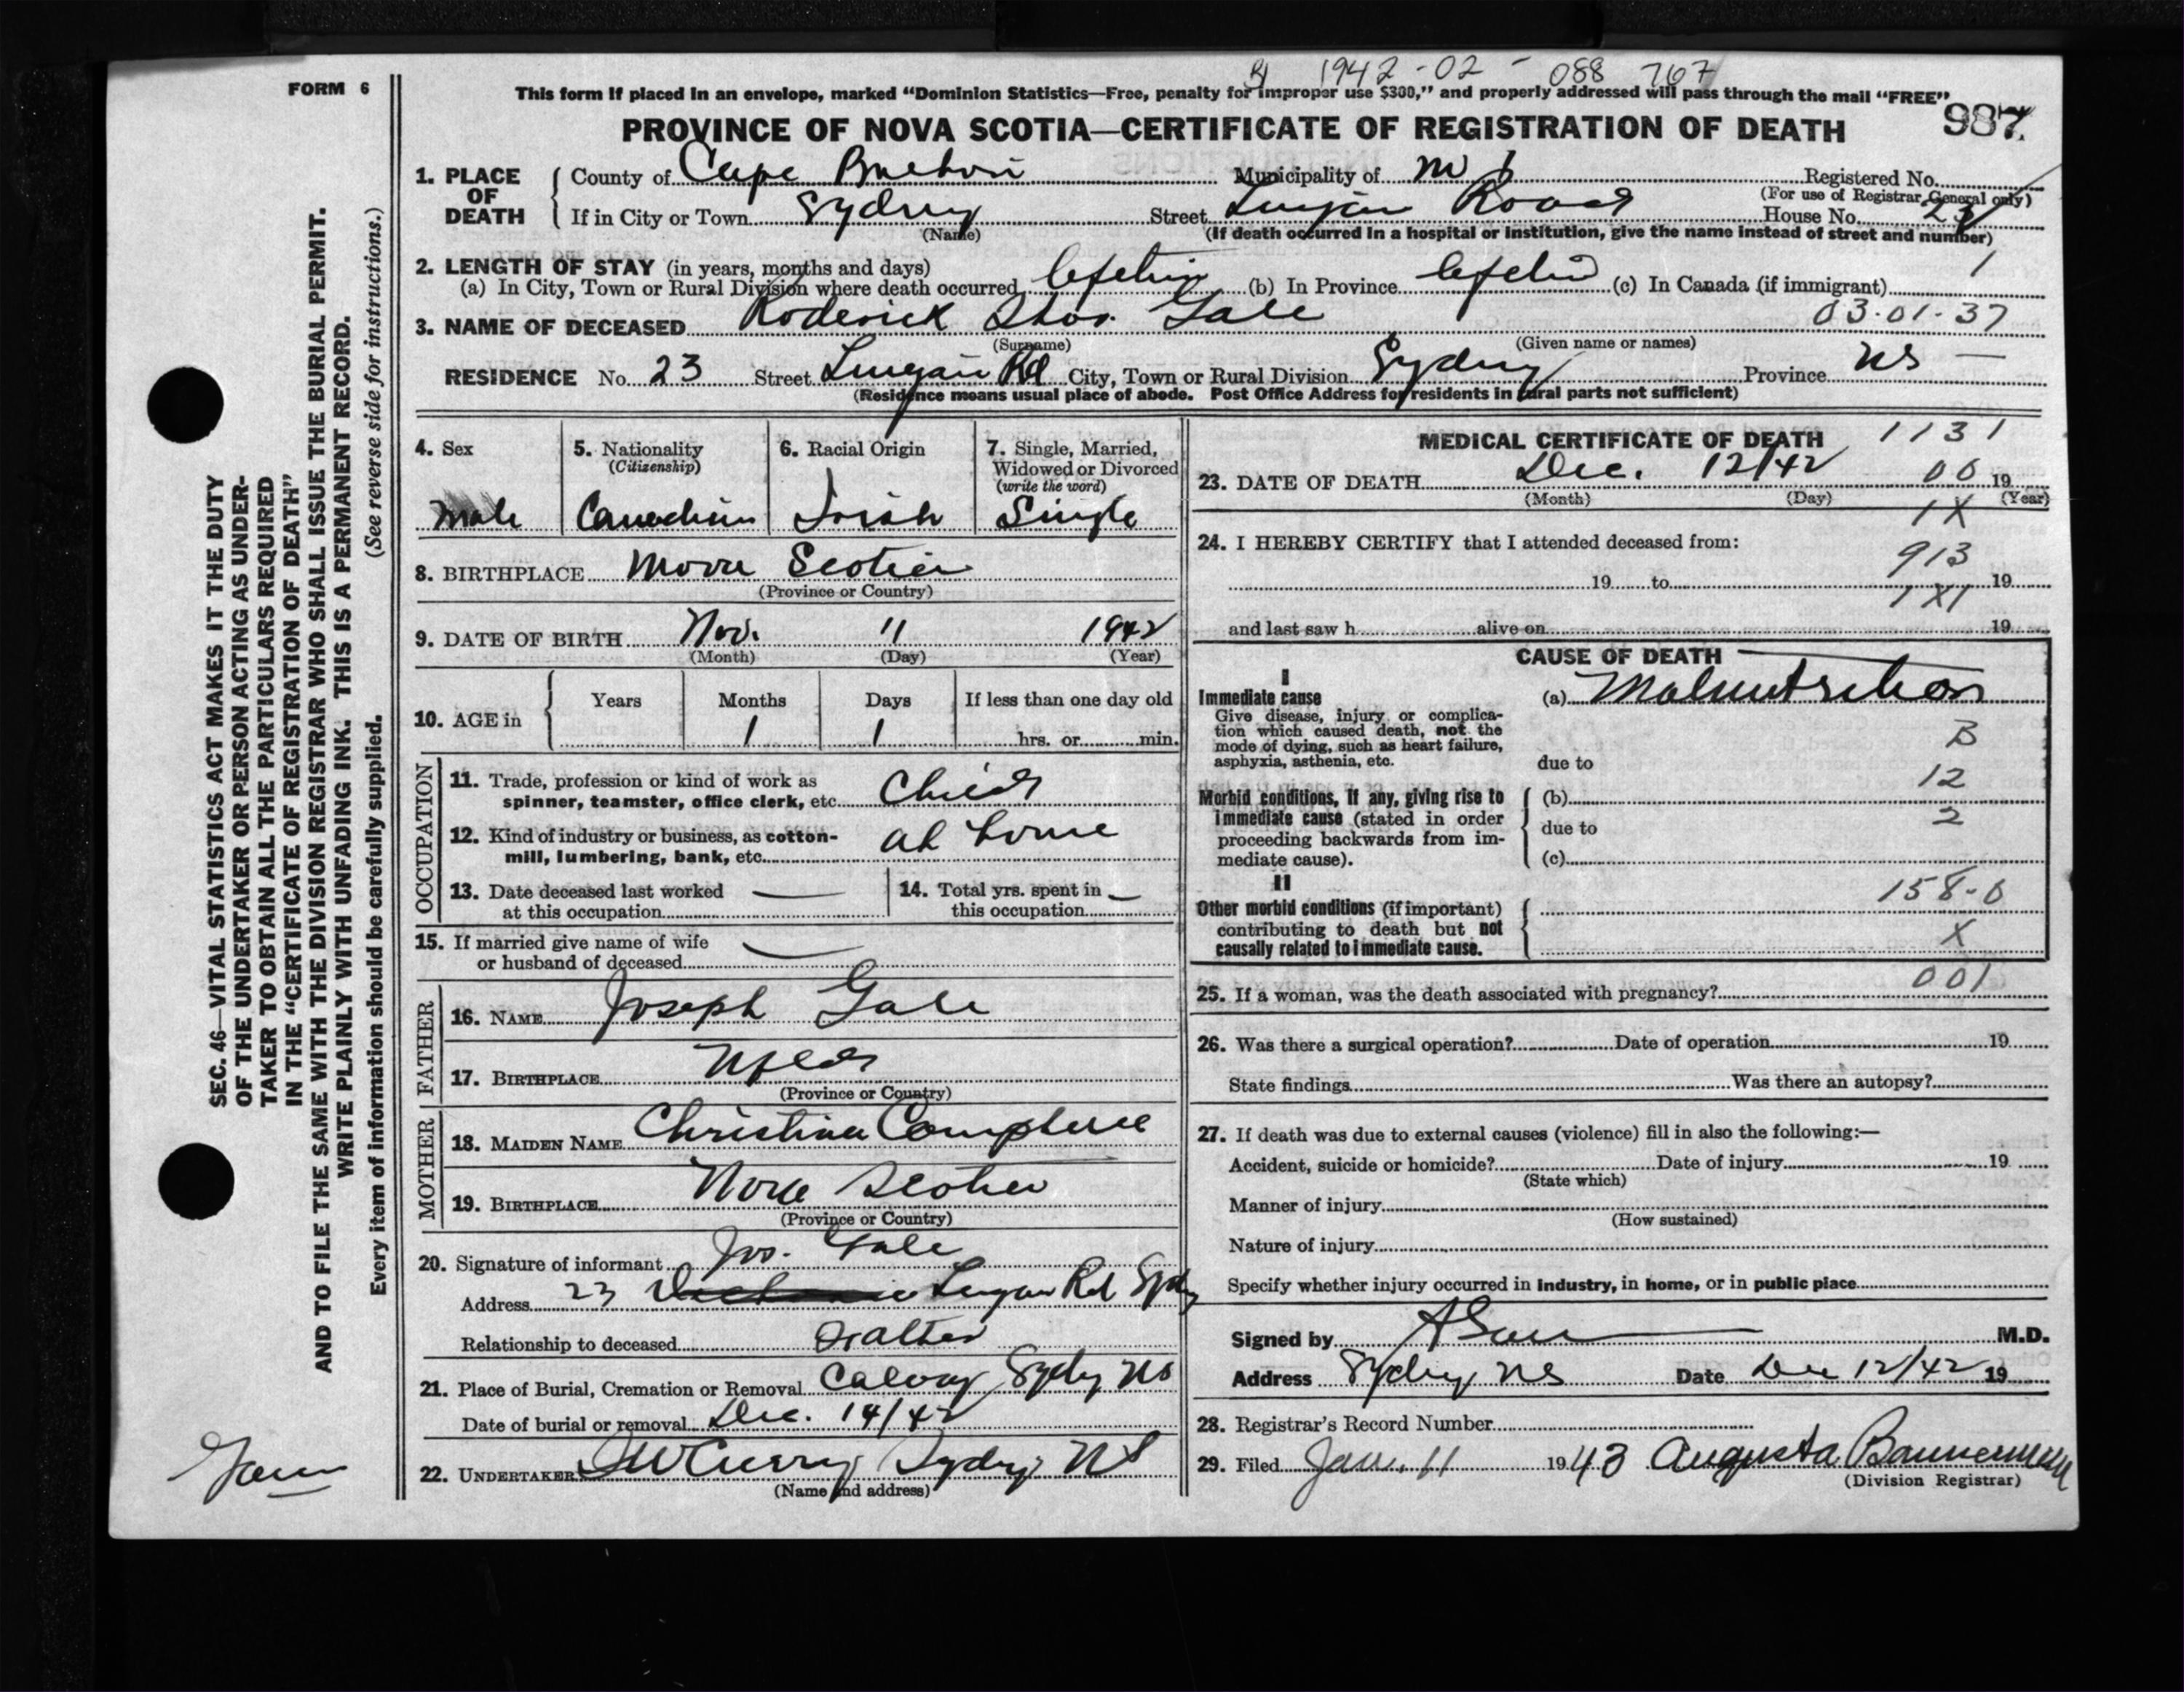 1942-02-088767
FORM 6
This form if placed in an envelope, marked “Dominion Statistics—Free, penalty for improper use $300,” and properly addressed will pass through the mail “FREE”
PROVINCE OF NOVA SCOTIA—CERTIFICATE OF REGISTRATION OF DEATH
987
1. PLACE OF DEATH
County of Cape Breton Municipality of Registered No.
(For use of Registrar General only)
If in City or Town Sydney Street Lingan Road House No. 23
(Name) (If death occurred in a hospital or institution, give the name instead of street and number)
2. LENGTH OF STAY (in years, months and days)
(a) In City, Town or Rural Division where death occurred Lifetime (b) In Province Lifetime (c) In Canada (if immigrant) 1
3. NAME OF DECEASED Roderick Thos. Gale 03-01-37
(Surname) (Given name or names)
RESIDENCE No. 23 Street Lingan Rd City, Town or Rural Division Sydney Province NS —
(Residence means usual place of abode. Post Office Address for residents in rural parts not sufficient)
4. Sex
Male
5. Nationality
(Citizenship)
Canadian
6. Racial Origin
Irish
7. Single, Married, Widowed or Divorced
(write the word)
Single
8. BIRTHPLACE Nova Scotia
(Province or Country)
9. DATE OF BIRTH Nov. 11 1942
(Month) (Day) (Year)
10. AGE in Years Months Days If less than one day old
1 1 hrs. or min.
OCCUPATION
11. Trade, profession or kind of work as
spinner, teamster, office clerk, etc. Child
12. Kind of industry or business, as cotton-
mill, lumbering, bank, etc. at home
13. Date deceased last worked —
at this occupation
14. Total yrs. spent in —
this occupation
15. If married give name of wife —
or husband of deceased
FATHER
16. NAME Joseph Gale
17. BIRTHPLACE Nfld
(Province or Country)
MOTHER
18. MAIDEN NAME Christina Campbell
19. BIRTHPLACE Nova Scotia
(Province or Country)
20. Signature of informant Jos. Gale
Address 23 Lingan Rd Sydney
Relationship to deceased Father
21. Place of Burial, Cremation or Removal Calvary Sydney NS
Date of burial or removal Dec. 14/42
22. UNDERTAKER Curry Sydney NS
(Name and address)
MEDICAL CERTIFICATE OF DEATH 1131
23. DATE OF DEATH Dec. 12/42 00 19
(Month) (Day) (Year)
1X
24. I HEREBY CERTIFY that I attended deceased from:
913
19 to 19
1X1
and last saw h alive on 19
CAUSE OF DEATH
I
Immediate cause
Give disease, injury or complica-
tion which caused death, not the
mode of dying, such as heart failure,
asphyxia, asthenia, etc.
(a) Malnutrition
B
due to
12
Morbid conditions, if any, giving rise to
immediate cause (stated in order
proceeding backwards from im-
mediate cause).
(b)
2
due to
(c)
II
Other morbid conditions (if important)
contributing to death but not
causally related to immediate cause.
158-0
X
001
25. If a woman, was the death associated with pregnancy?
26. Was there a surgical operation? Date of operation 19
State findings Was there an autopsy?
27. If death was due to external causes (violence) fill in also the following:—
Accident, suicide or homicide? Date of injury 19
(State which)
Manner of injury
(How sustained)
Nature of injury
Specify whether injury occurred in industry, in home, or in public place
Signed by M.D.
Address Sydney, NS Date Dec 12/42 19
28. Registrar's Record Number
29. Filed Jan. 11 1943 Augusta Bannerman
(Division Registrar)
SEC. 46—VITAL STATISTICS ACT MAKES IT THE DUTY
OF THE UNDERTAKER OR PERSON ACTING AS UNDER-
TAKER TO OBTAIN ALL THE PARTICULARS REQUIRED
IN THE “CERTIFICATE OF REGISTRATION OF DEATH”
AND TO FILE THE SAME WITH THE DIVISION REGISTRAR WHO SHALL ISSUE THE BURIAL PERMIT.
WRITE PLAINLY WITH UNFADING INK. THIS IS A PERMANENT RECORD.
Every item of information should be carefully supplied. (See reverse side for instructions.)